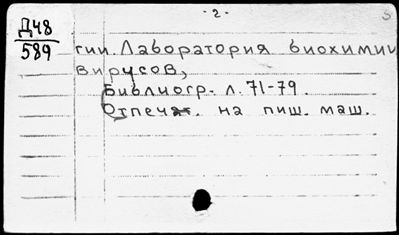 - 2 -
Д48
589
гии. Лаборатория биохимии
вирусов,
Библиогр. л. 71-79.
Отпечат. на пиш. маш.